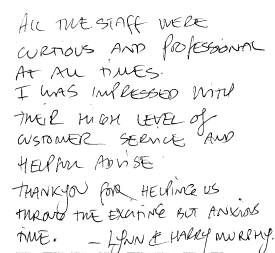 ALL THE STAFF WERE
CURTIOUS AND PROFESSIONAL
AT ALL TIMES.
I WAS IMPRESSED WITH
THEIR HIGH LEVEL of
CUSTOMER SERVICE AND
HELPFUL ADVISE
THANKYOU FOR HELPING US
THROUG THE EXCITING BUT ANXIOUS
TIME. - LYNN & HARRY MURPHY.